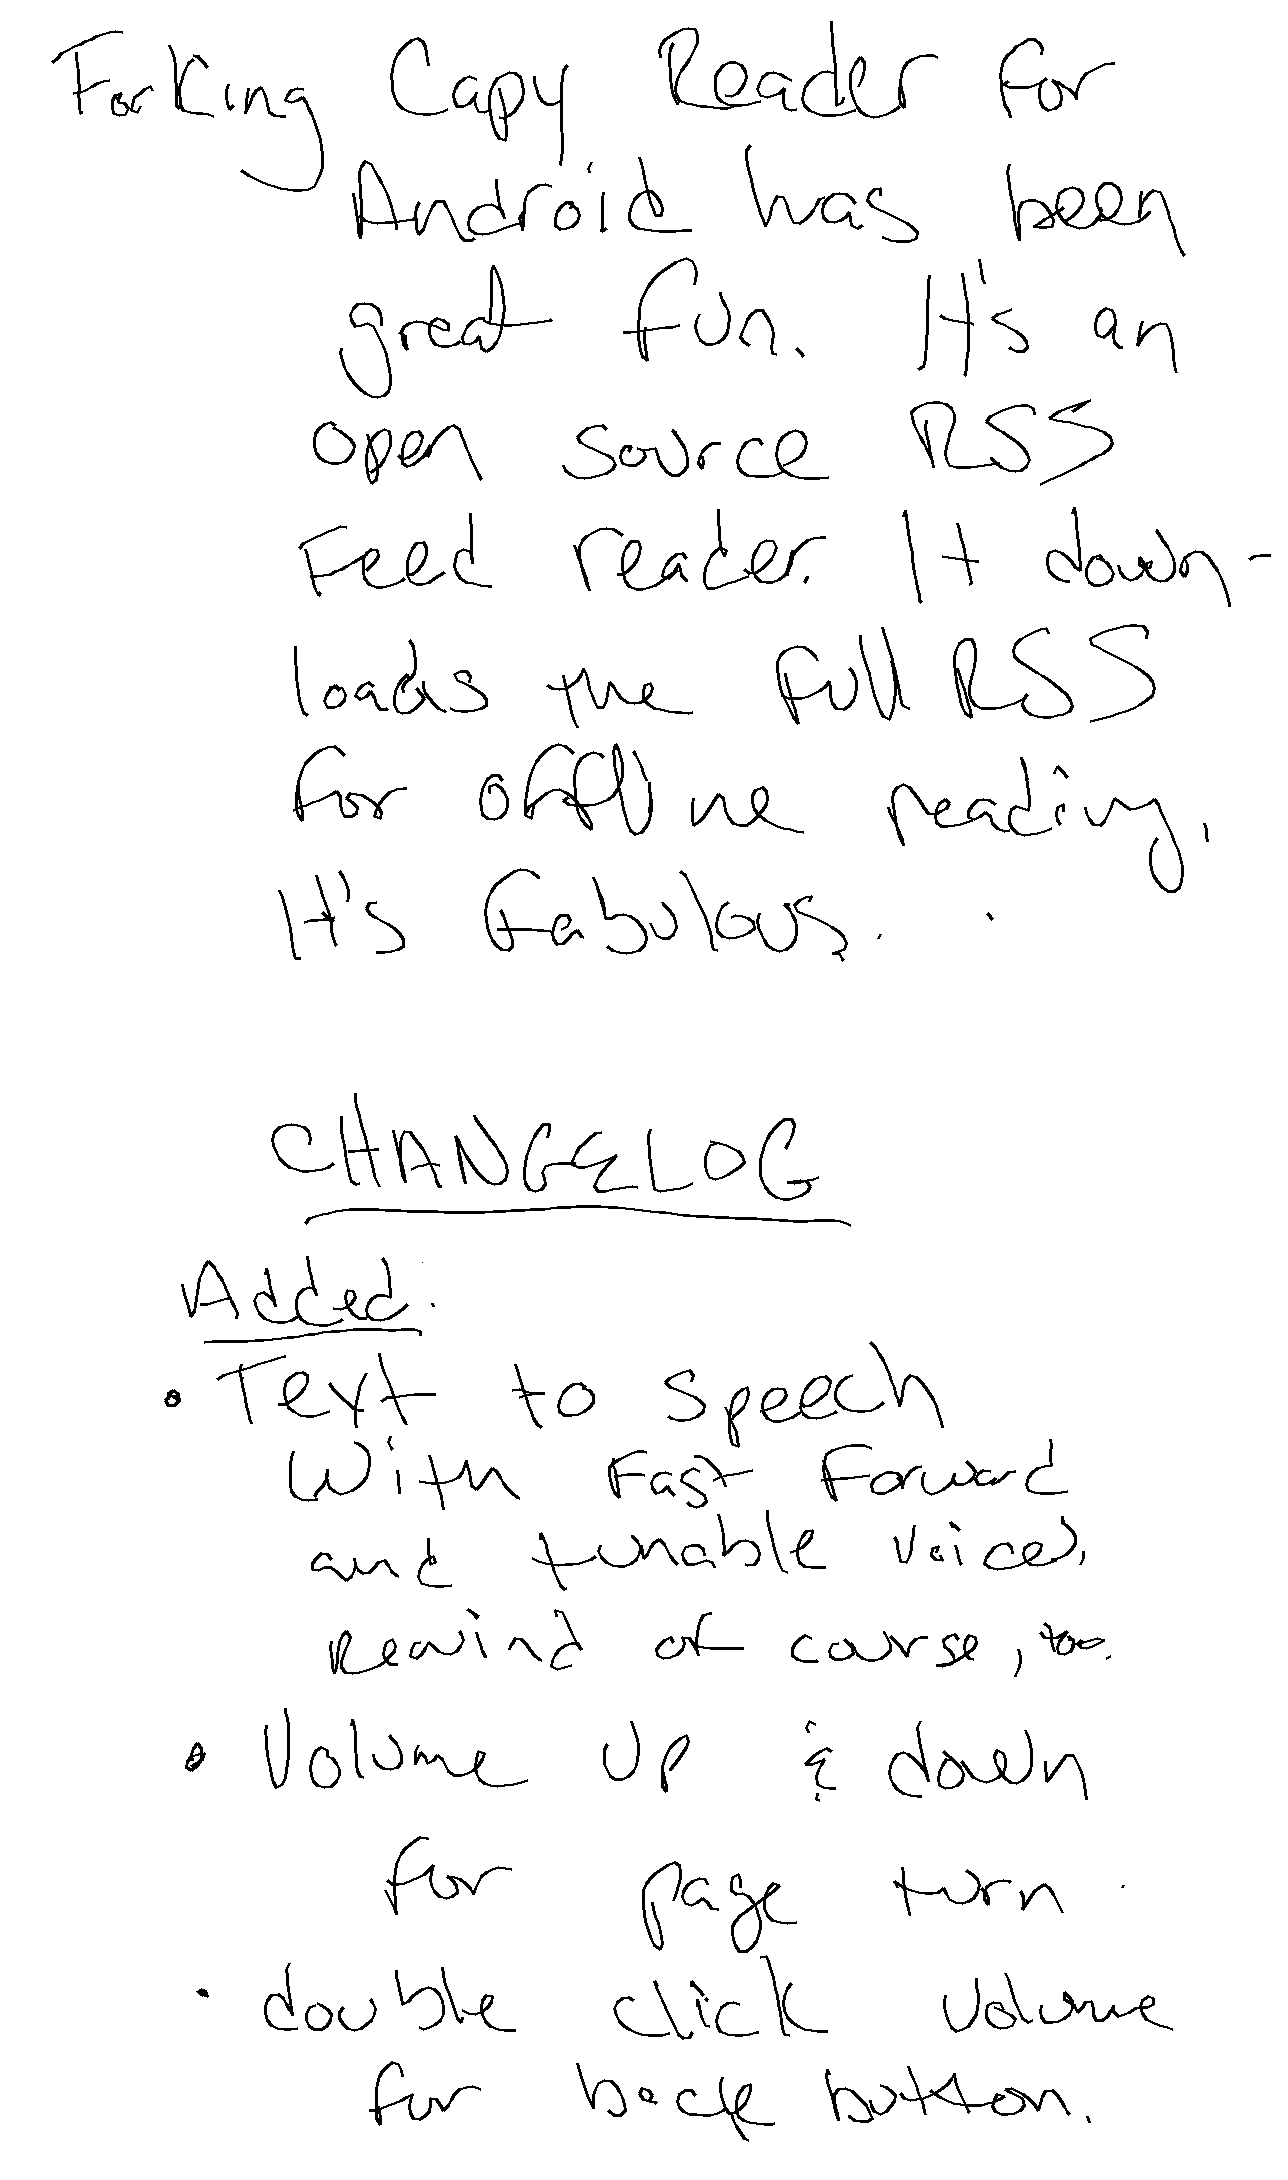 Forking Capy Reader for
Android has been
great fun. It's an
open source RSS
Feed reader. It down-
loads the full RSS
for offline reading.
It's fabulous.
CHANGELOG
Added:
• Text to speech
with fast forward
and tunable voice,
rewind of course, too.
• Volume up & down
for page turn
• double click volume
for back button.